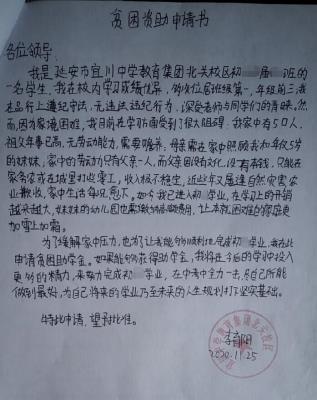 贫困资助申请书
各位领导:
我是延安市宜川中学教育集团北关校区初 届 班的
一名学生,我在校内学习成绩优异,
我在品行上遵纪守法,无违法违纪行为,深受老师与同学们的青睐。然
而,因为家境困难,我目前在学习方面受到了很大阻碍:我家中有5口人,
祖父年事已高,无劳动能力,需要赡养,母亲需在家中照顾我和年仅5岁
的妹妹,家中的劳动力只有父亲一人,而父亲因没有文化没有
家务农或在城里打些零工,收入极不稳定,近些年又屡遭自然灾害农
业歉收,家中生活每况愈下。如今我已进入初 ,在学习上的开销
越来越大,妹妹的幼儿园也需缴纳高额费用,让本就困难的家庭更
加雪上加霜。
为了缓解家中压力,也为了让我能够顺利地完成初 学业,我在此
申请贫困助学金。如果能够获得助学金,我将在今后的学习中投入
更多的精力,来努力完成初 学业,在中考中全力一击,尽自己所能
做到最好,为自己将来的学业乃至未来的人生规划打下坚实基础。
特此申请,望予批准。
李
2020.11.25